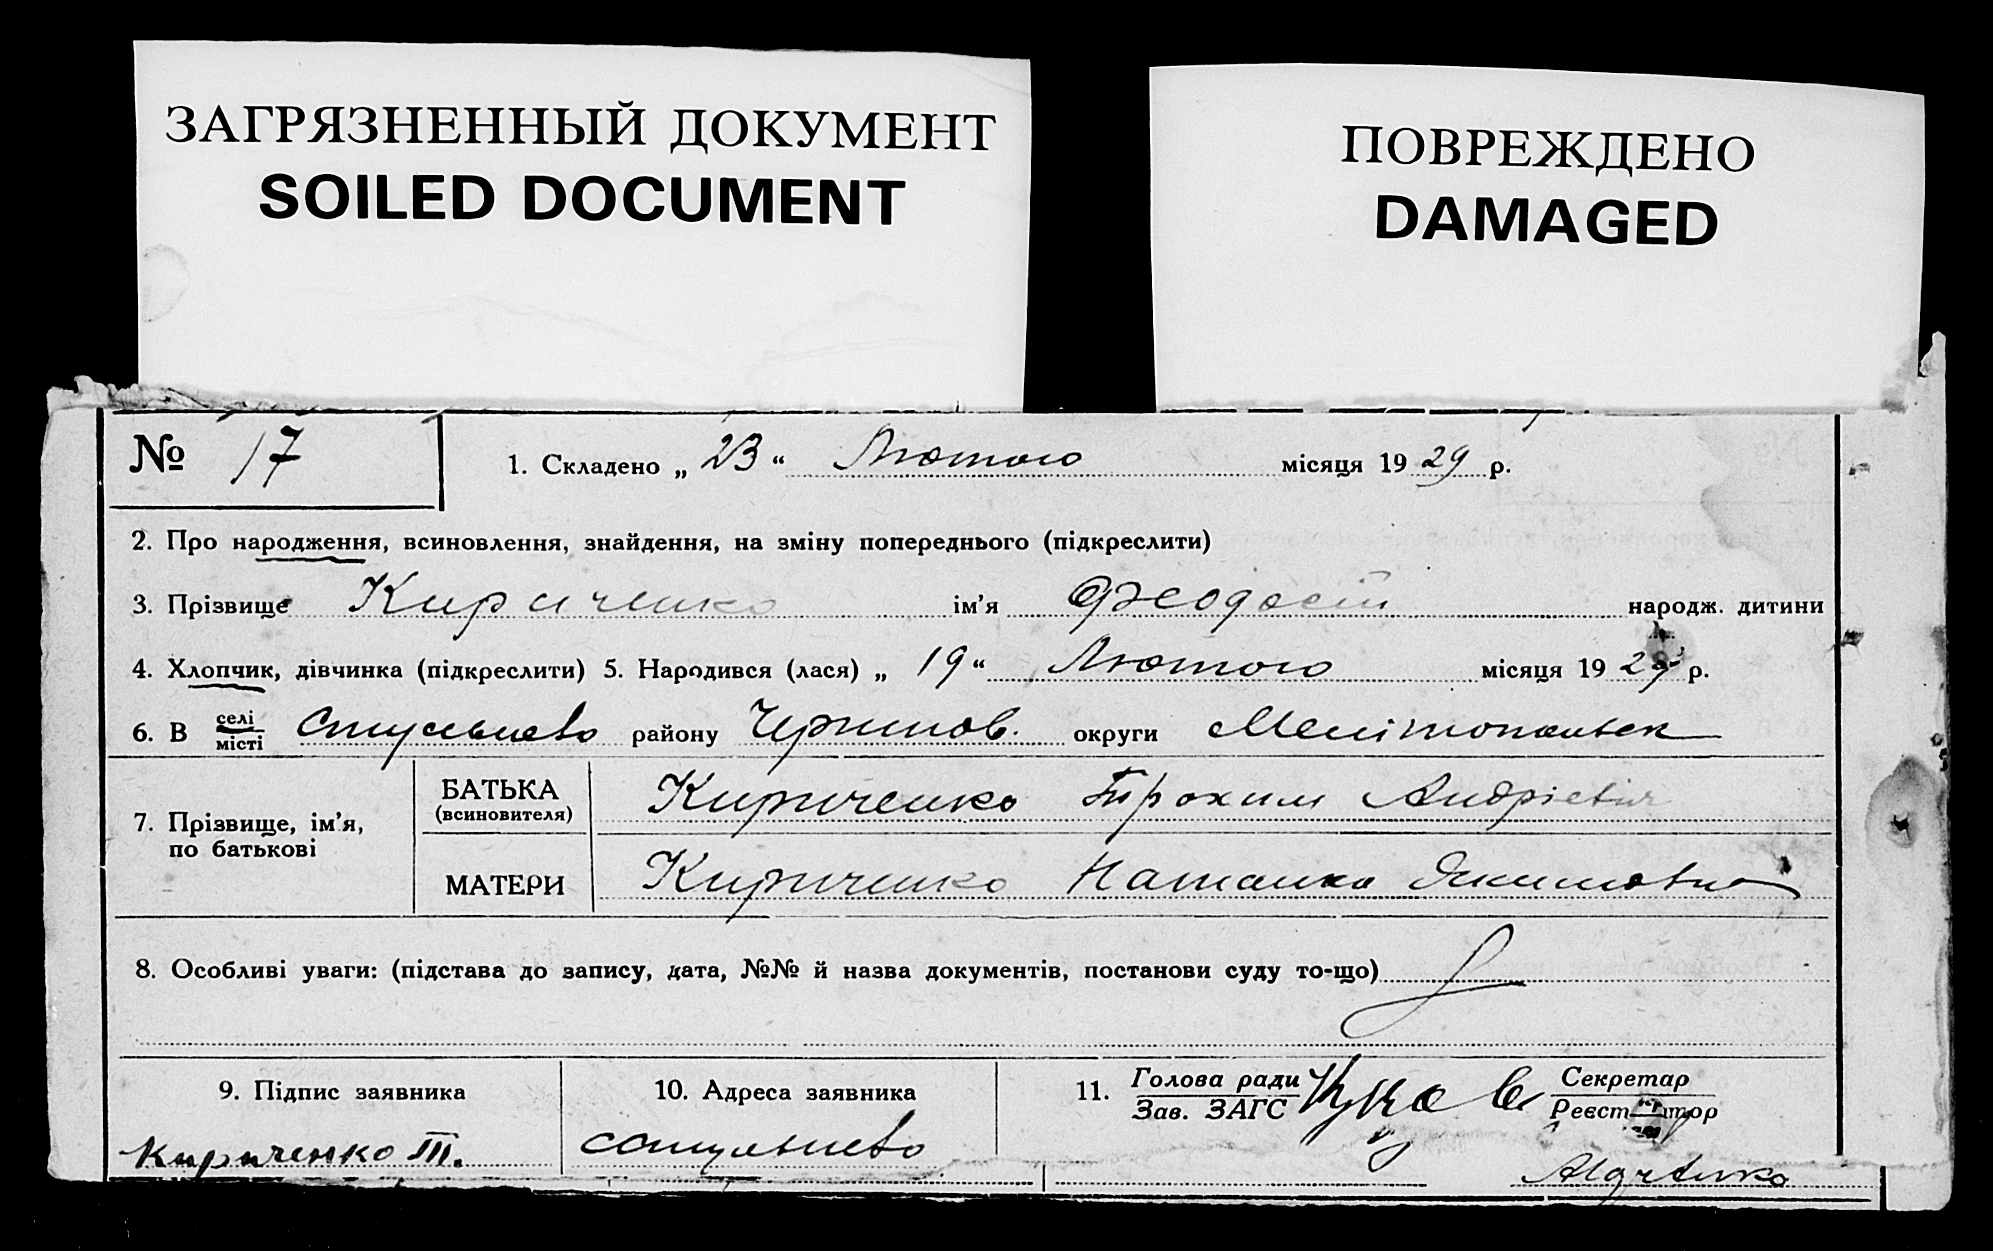 ЗАГРЯЗНЕННЫЙ ДОКУМЕНТ
SOILED DOCUMENT
ПОВРЕЖДЕНО
DAMAGED
№ 17
1. Складено „ 23 “ Лютого місяця 19 29 р.
2. Про народження, всиновлення, знайдення, на зміну попереднього (підкреслити)
3. Прізвище Кириченко ім’я Феодосій народж. дитини
4. Хлопчик, дівчинка (підкреслити) 5. Народився (лася) „ 19 “ Лютого місяця 19 29 р.
6. В селі
місті
району Черниговˑ округи Мелітопольськ
7. Прізвище, ім’я,
по батькові
БАТЬКА
(всиновителя)
Кириченко Трохим Андрієвич
МАТЕРИ
Кириченко Наталка Якимовна
8. Особливі уваги: (підстава до запису, дата, №№ й назва документів, постанови суду то-що)
9. Підпис заявника
Кириченко Т.
10. Адреса заявника
11. Голова ради
Зав. ЗАГС
Секретар
Реєстратор